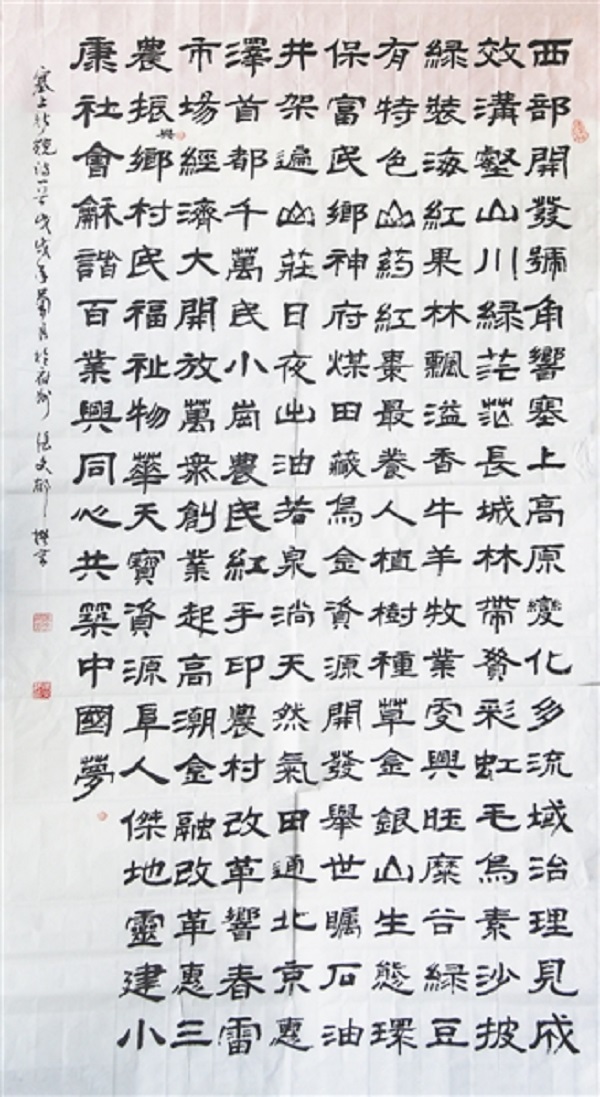 西部開發號角響塞上高原變化多流域治理見成
效溝壑山川綠茫茫長城林帶賽彩虹毛烏素沙披
綠裝海紅果林飄溢香牛羊牧業更興旺糜谷綠豆
有特色山药紅棗最養人植樹種草金銀山生態環
保富民鄉神府煤田藏烏金資源開發舉世矚石油
井架遍山莊日夜出油若泉淌天然氣田通北京惠
澤首都千萬民小崗農民紅手印農村改革響春雷
市場經濟大開放萬衆創業起高潮金融改革惠三
農振鄉村民福祉物華天寶資源阜人傑地靈建小
興
康社會龢諧百業興同心共築中國夢
塞上新貌詩一首戊戌年於